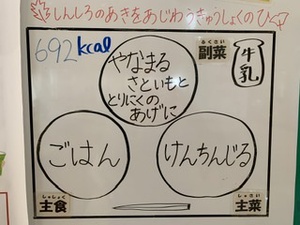 しんしろのあきをあじわうきゅうしょくのひ
692kcal
ふくさい
副菜
牛乳
やなまる
さといもと
とりにくの
あげに
ごはん
けんちんじる
しゅしょく
主食
しゅさい
主菜